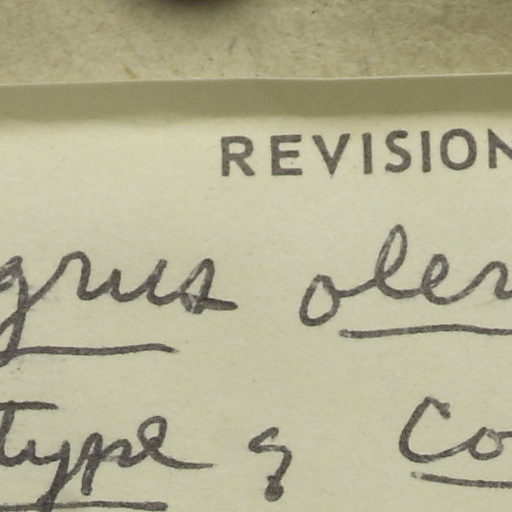 REVISION
grus oler
type of Co